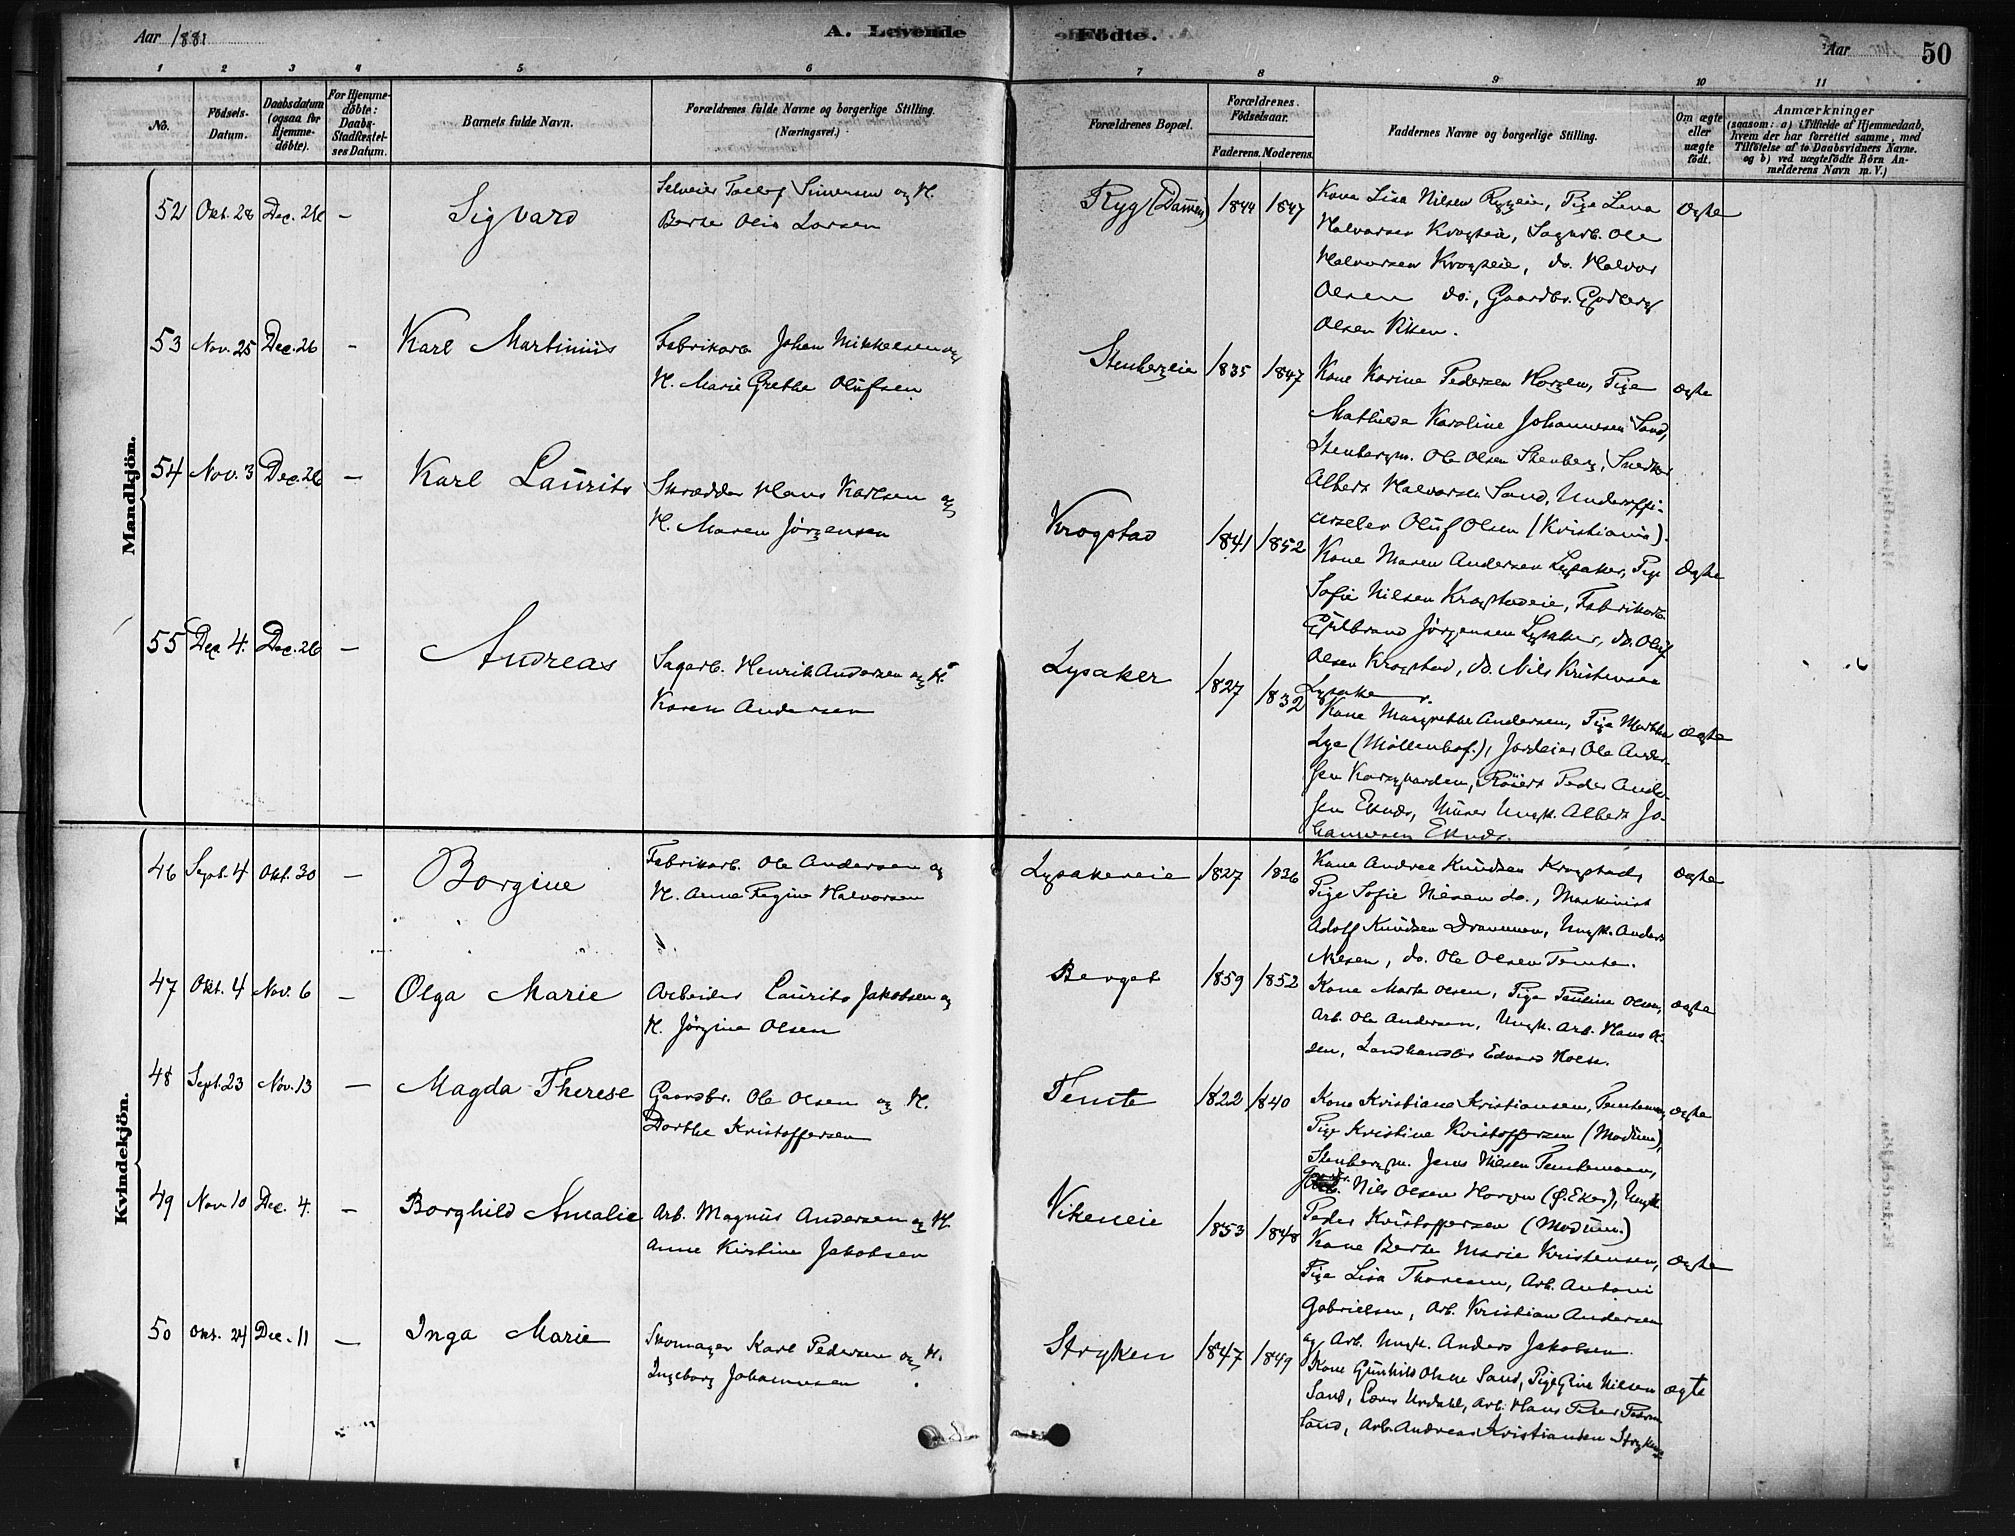 Aar 1881
A. Levende Födte.
Aar
50
1 2 3 4 5 6 7 8 9 10 11
No.
Födsels-Datum.
Daabsdatum (ogsaa for Hjemme-döbte).
For Hjemme-döbte: Daabs-Stadfæstel-ses Datum.
Barnets fulde Navn.
Forældrenes fulde Navne og borgerlige Stilling.
(Næringsvei.)
Forældrenes Bopæl.
Forældrenes Födselsaar.
Faderens. Moderens.
Faddernes Navne og borgerlige Stilling.
Om ægte eller uægte födt.
Anmærkninger
(saasom: a) i Tilfælde af Hjemmedaab,
hvem der har forrettet samme, med
Tilföielse af to Daabsvidners Navne.
og b) ved uægtefödte Börn An-
melderens Navn m. V.)
Mandkjön.
52 Okt. 28 Dec. 26 — Sigvard
Selveier Tollef Simensen og H.
Berte Olia Larsen
Ryg (Dammen) 1844 1847
Kone Lisa Nilsen Rygeie, Pige Lena
Halvorsen Krogseie, Sagarb. Ole
Halvorsen Krogseie, do. Halvor
Olsen do., Gaardbr.
Olsen Viken.
Ægte
53 Nov. 25 Dec. 26 - Karl Martinius
Fabrikarb. Johan Mikkelsen og
H. Marie Grethe Olufsen
Stenbergeie 1835 1847
Kone Karine Pedersen Horgen, Pige
Mathilde Karoline Johannesen Sand,
Stenbergm. Ole Olsen Stenberg, Snedker
Albert Halvorsen Sand, Underoffi-
cerselev Oluf Olsen (Kristiania).
ægte
54 Nov. 3 Dec. 26 — Karl Laurits
Skrædder Hans Karlsen og
H. Maren Jørgensen
Krogstad 1841 1852
Kone Maren Andersen Lysaker, Pige
Sofie Nilsen Krogstadeie, Fabrikarb.
Gulbrand Jørgensen Lysaker, do. Oluf
Olsen Krogstad, do. Nils Kristensen
Lysaker.
Ægte
55 Dec. 4. Dec. 26 — Andreas
Sagarb. Henrik Andersen og H.
Karen Andersen
Lysaker 1827 1832
Kone Margrethe Andersen, Pige Marthe
Lye (Møllenhof.), Jordeier Ole Ander-
sen Korsgaarden, Peder Ander-
sen Eknes, Murer Ungk. Albert Jo-
hannesen Eknes.
ægte
Kvindekjön.
46 Sept. 4 Okt. 30 — Borgine
Fabrikarb. Ole Andersen og
H. Anne Regine Halvorsen
Lysakereie 1827 1836
Kone Andrea Knudsen Krogstad,
Pige Sofie Nilsen do., Maskinist
Adolf Knudsen Drammen, Ungk. Anders
Nilsen, do. Ole Olsen Temte.
ægte
47 Okt. 4 Nov. 6 — Olga Marie
Arbeider Laurits Jakobsen og
H. Jørgine Olsen
Berget 1859 1852
Kone Marte Olsen, Pige Pauline Olsen,
Arb. Ole Andersen, Ungk. Arb. Hans Ol-
sen, Landhandler Edvard Holm.
ægte
48 Sept. 23 Nov. 13 — Magda Therese
Gaardbr. Ole Olsen og H.
Dorthe Kristoffersen
Temte 1822 1840
Kone Kristiane Kristiansen, Temtemoen,
Pige Kristine Kristoffersen (Modum),
Stenbergm. Jens Nilsen Temtemoen,
Nils Olsen Horgen (Ø. Eker), Ungk.
Peder Kristoffersen (Modum.)
ægte
49 Nov 10 Dec. 4. — Borghild Amalie
Arb. Magnus Andersen og H.
Anne Kirstine Jakobsen
Vikeneie 1853 1848
Kone Berte Marie Kristensen,
Pige Lisa Thoresen, Arb. Antoni
Gabrielsen, Arb. Kristian Andersen
og Arb. Ungk. Anders Jakobsen.
ægte
50 Okt. 24 Dec. 11 — Inga Marie
Skomager Karl Pedersen og H.
Ingeborg Johannesen
Stryken 1847 1849
Kone Gunhild Olsen Sand, Pige Gina Nilsen
Sand, Urdahl, Arb. Hans Peter
Sand, Arb. Andreas Kristiansen Stryken
ægte